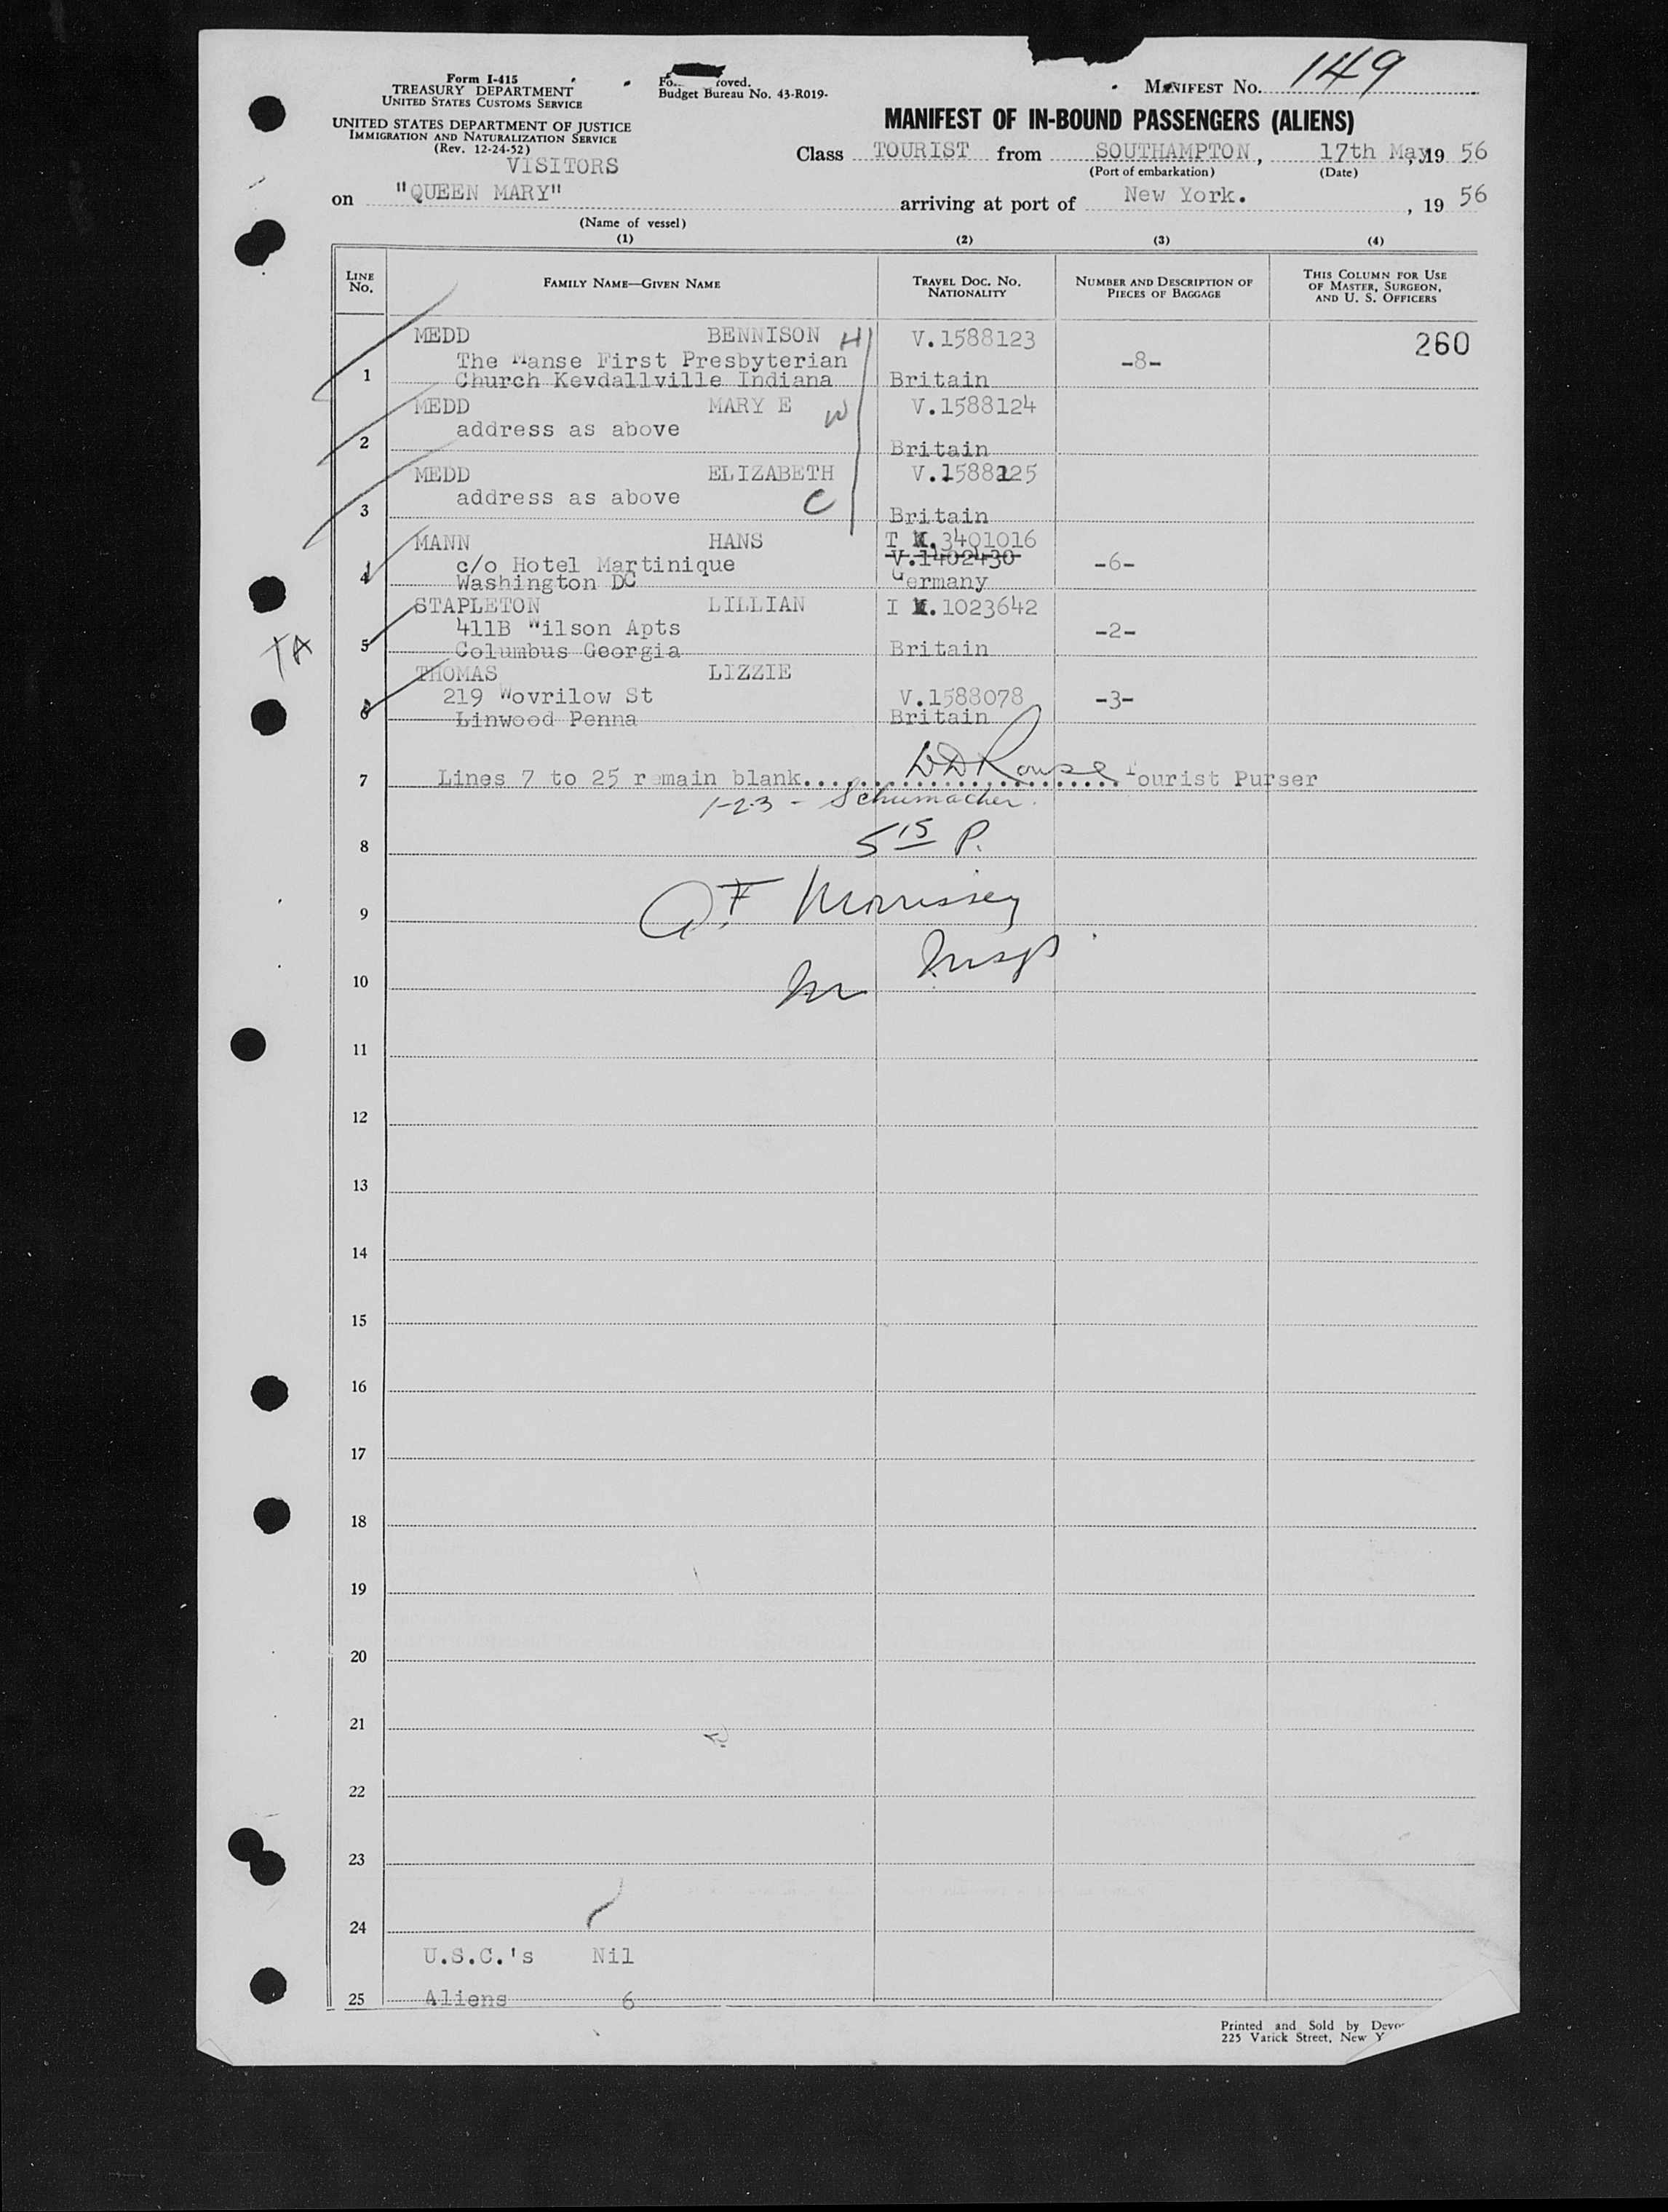 Form I-415
TREASURY DEPARTMENT
UNITED STATES CUSTOMS SERVICE
UNITED STATES DEPARTMENT OF JUSTICE
IMMIGRATION AND NATURALIZATION SERVICE
(Rev. 12-24-52)
VISITORS
Fo roved.
Budget Bureau No. 43-R019-
MANIFEST No. 149
MANIFEST OF IN-BOUND PASSENGERS (ALIENS)
Class TOURIST from SOUTHAMPTON, 17th May, 19 56
(Port of embarkation) (Date)
on "QUEEN MARY" arriving at port of New York. , 19 56
(Name of vessel)
(1) (2) (3) (4)
LINE No. FAMILY NAME—GIVEN NAME TRAVEL DOC. No. NATIONALITY NUMBER AND DESCRIPTION OF PIECES OF BAGGAGE THIS COLUMN FOR USE OF MASTER, SURGEON, AND U. S. OFFICERS
MEDD BENNISON H V.1588123 260
The Manse First Presbyterian -8-
1 Church Kevdallville Indiana Britain
MEDD MARY E W V.1588124
address as above
2 Britain
MEDD ELIZABETH V.1588125
address as above C
3 Britain
MANN HANS T .3401016
c/o Hotel Martinique V.1402430 -6-
4 Washington DC Germany
STAPLETON LILLIAN I .1023642
411B Wilson Apts -2-
TA 5 Columbus Georgia Britain
THOMAS LIZZIE
219 Wovrilow St V.1588078 -3-
6 Linwood Penna Britain
7 Lines 7 to 25 remain blank. DD Rouse Tourist Purser
1-2-3 - Schumacher.
8 5 15 P.
9 Morrissey
10
11
12
13
14
15
16
17
18
19
20
21
22
23
24
U.S.C.'s Nil
25 Aliens 6
Printed and Sold by
225 Varick Street, New Y